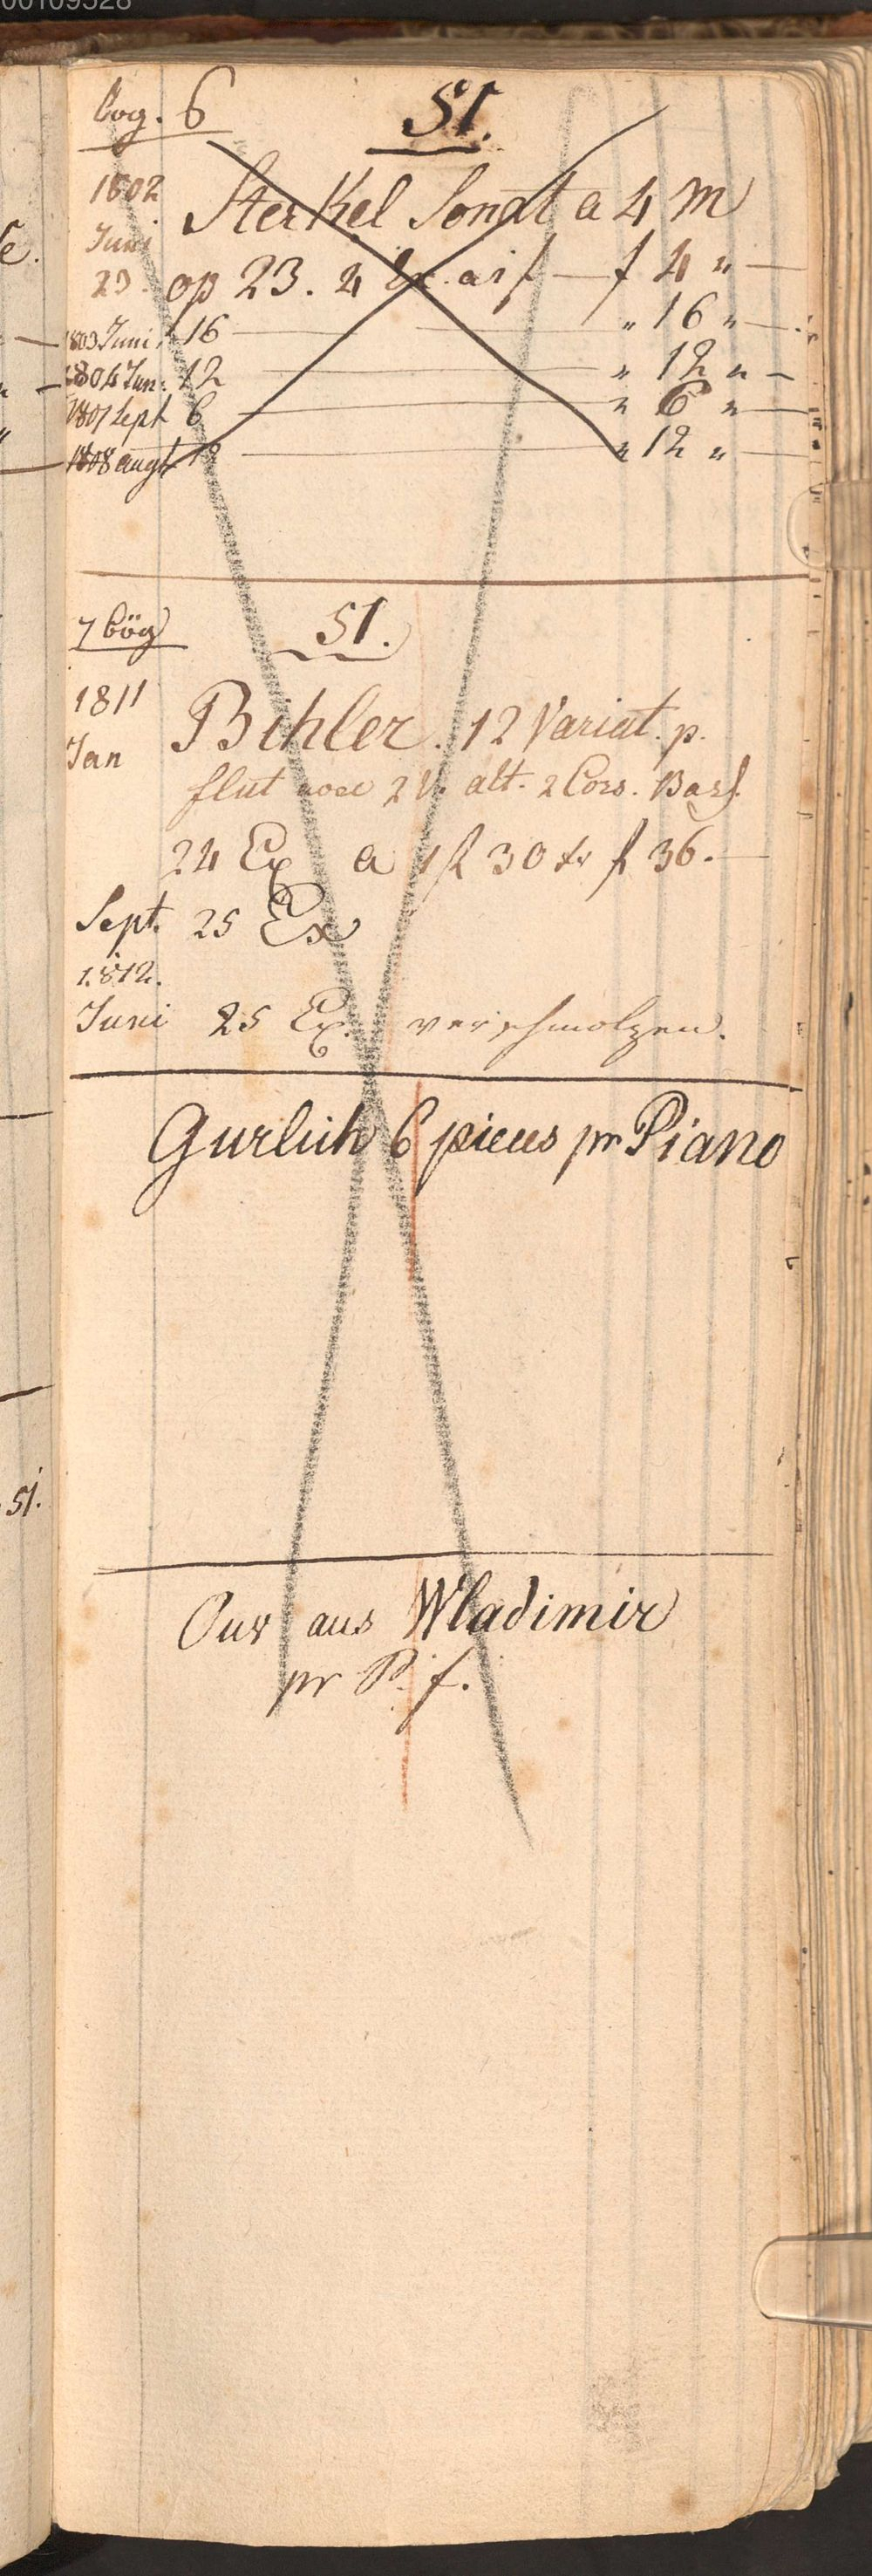 00109528
bog. 6 51.
1802 Sterkel Sonat a 4 M
Juni
23 op 23. 4 Ex. a 1 f — f 4 " —
1803 Juni. 16 — " 16 " —
1804 Jun. 12 — " 12 " —
1807 Sept 6 — " 6 " —
1808 augt 12 — " 12 " —
7 bög 51.
1811 Bihler. 12 Variat. p.
Jan
flut avec 2 V. alt. 2 Cors. Bass.
24 Ex a 1 f 30 xr f 36. —
Sept. 25 Ex
1812.
Juni 25 Ex. verschmolzen.
Gurlich 6 pieces pr Piano
Ouv aus Wladimir
pr P. f.
51.